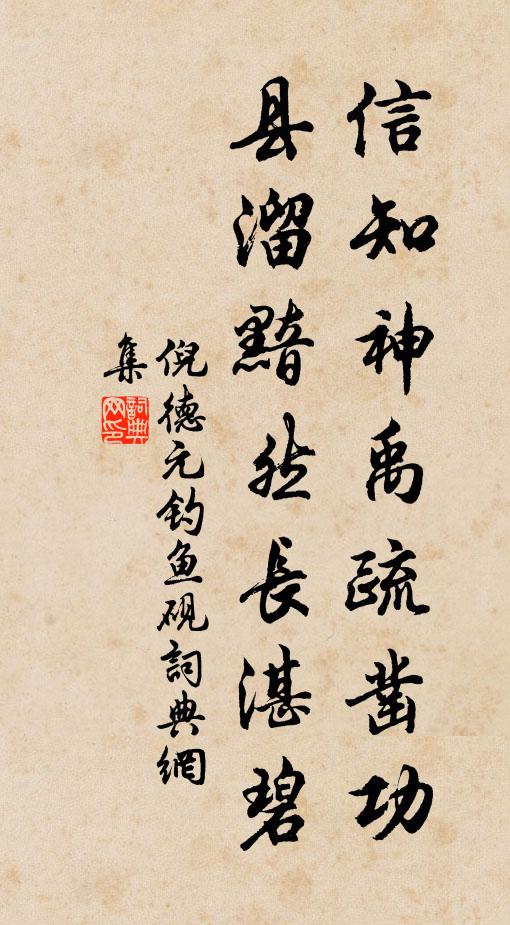 信知神禹疏凿功
县溜黯然長湛碧
倪德元钓鱼砚詞典網
集
詞典网印